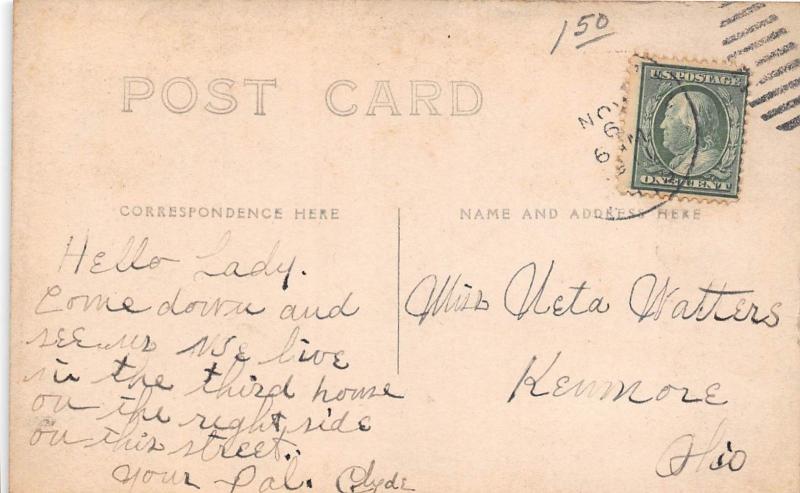 1 50
POST CARD
U.S. POSTAGE
ONE CENT
NOV
CORRESPONDENCE HERE
NAME AND ADDRESS HERE
Hello Lady.
Come down and
see us We live
in the third house
on the right side
on this street.
Your Pal. Clyde
Miss Neta Watters
Kenmore
Ohio